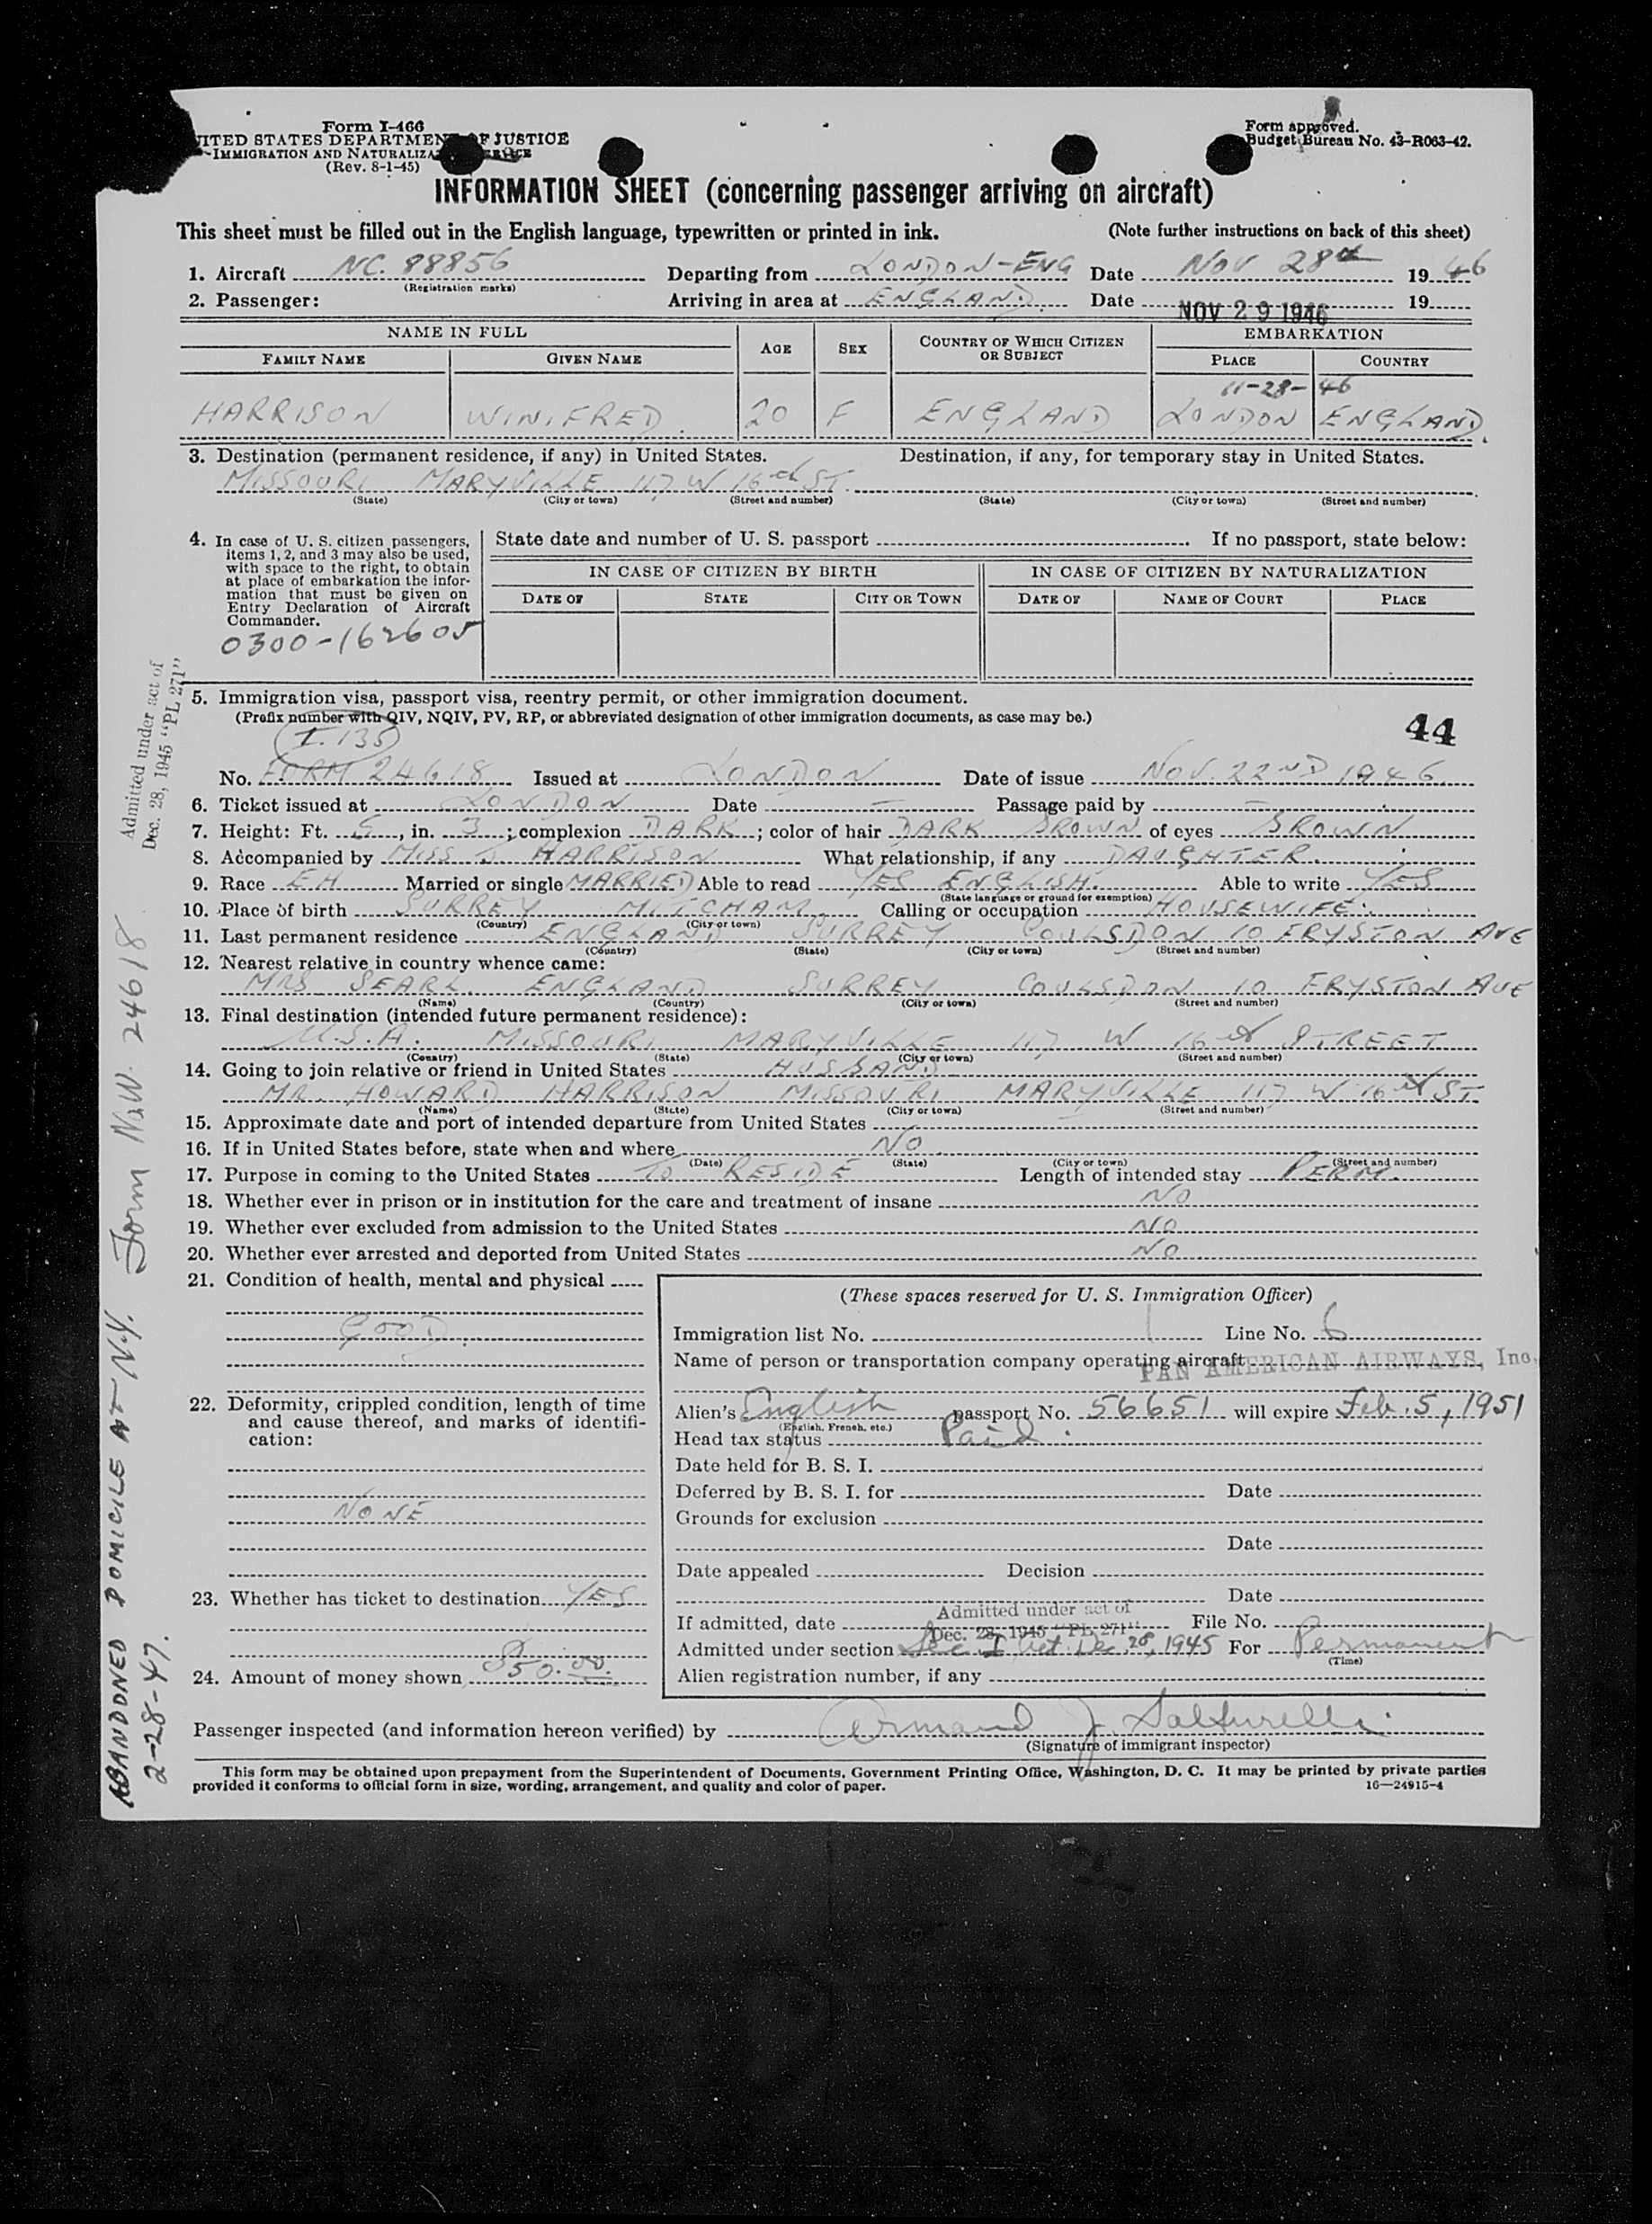 Form I-466
UNITED STATES DEPARTMENT OF JUSTICE
IMMIGRATION AND NATURALIZATION SERVICE
(Rev. 8-1-45)
Form approved.
Budget Bureau No. 43-R063-42.
INFORMATION SHEET (concerning passenger arriving on aircraft)
This sheet must be filled out in the English language, typewritten or printed in ink. (Note further instructions on back of this sheet)
1. Aircraft NC. 88856 Departing from LONDON-ENG Date NOV 28th 1946
(Registration marks)
2. Passenger: Arriving in area at ENGLAND. Date NOV 29 1946 19
NAME IN FULL AGE SEX COUNTRY OF WHICH CITIZEN OR SUBJECT EMBARKATION
FAMILY NAME GIVEN NAME PLACE COUNTRY
11-28-46
HARRISON WINIFRED. 20 F ENGLAND LONDON ENGLAND.
3. Destination (permanent residence, if any) in United States. Destination, if any, for temporary stay in United States.
MISSOURI MARYVILLE 117 W 16th ST.
(State) (City or town) (Street and number) (State) (City or town) (Street and number)
4. In case of U. S. citizen passengers,
items 1, 2, and 3 may also be used,
with space to the right, to obtain
at place of embarkation the infor-
mation that must be given on
Entry Declaration of Aircraft
Commander.
0300-162605
State date and number of U. S. passport If no passport, state below:
IN CASE OF CITIZEN BY BIRTH IN CASE OF CITIZEN BY NATURALIZATION
DATE OF STATE CITY OR TOWN DATE OF NAME OF COURT PLACE
Admitted under act of
Dec. 28, 1945 "PL 271"
5. Immigration visa, passport visa, reentry permit, or other immigration document.
(Prefix number with QIV, NQIV, PV, RP, or abbreviated designation of other immigration documents, as case may be.)
44
I. 135
No. FORM 24618 Issued at LONDON Date of issue NOV. 22ND 1946.
6. Ticket issued at LONDON Date — Passage paid by —
7. Height: Ft. 5, in. 3; complexion DARK; color of hair DARK BROWN of eyes BROWN
8. Accompanied by MISS J HARRISON What relationship, if any DAUGHTER.
9. Race EH Married or single MARRIED Able to read YES ENGLISH. Able to write YES
(State language or ground for exemption)
10. Place of birth SURREY MITCHAM. Calling or occupation HOUSEWIFE.
(Country) (City or town)
11. Last permanent residence ENGLAND SURREY COULSDON 10 FRYSTON AVE
(Country) (State) (City or town) (Street and number)
12. Nearest relative in country whence came:
MRS SEARL. ENGLAND SURREY COULSDON 10 FRYSTON AVE
(Name) (Country) (City or town) (Street and number)
13. Final destination (intended future permanent residence):
U.S.A. MISSOURI MARYVILLE 117 W 16th STREET
(Country) (State) (City or town) (Street and number)
14. Going to join relative or friend in United States HUSBAND
MR. HOWARD HARRISON MISSOURI MARYVILLE 117 W 16th ST.
(Name) (State) (City or town) (Street and number)
15. Approximate date and port of intended departure from United States
16. If in United States before, state when and where NO.
(Date) (State) (City or town) (Street and number)
17. Purpose in coming to the United States TO RESIDE Length of intended stay PERM.
18. Whether ever in prison or in institution for the care and treatment of insane NO
19. Whether ever excluded from admission to the United States NO
20. Whether ever arrested and deported from United States NO
21. Condition of health, mental and physical
GOOD.
22. Deformity, crippled condition, length of time
and cause thereof, and marks of identifi-
cation:
NONE
23. Whether has ticket to destination YES
24. Amount of money shown $50.00.
(These spaces reserved for U. S. Immigration Officer)
Immigration list No. 1 Line No. 6
Name of person or transportation company operating aircraft PAN AMERICAN AIRWAYS, Inc.
Alien's English passport No. 56651 will expire Feb. 5, 1951
(English, French, etc.)
Head tax status Paid.
Date held for B. S. I.
Deferred by B. S. I. for Date
Grounds for exclusion
Date
Date appealed Decision
Date
Admitted under act of
Dec. 28, 1945 "PL 271"
If admitted, date File No.
Admitted under section Sec I Act Dec. 28, 1945 For Permanent
(Time)
Alien registration number, if any
Passenger inspected (and information hereon verified) by Armand J. Salturelli
(Signature of immigrant inspector)
This form may be obtained upon prepayment from the Superintendent of Documents, Government Printing Office, Washington, D. C. It may be printed by private parties
provided it conforms to official form in size, wording, arrangement, and quality and color of paper. 16—24915-4
ABANDONED DOMICILE AT N.Y. Form 24618
2-28-47.